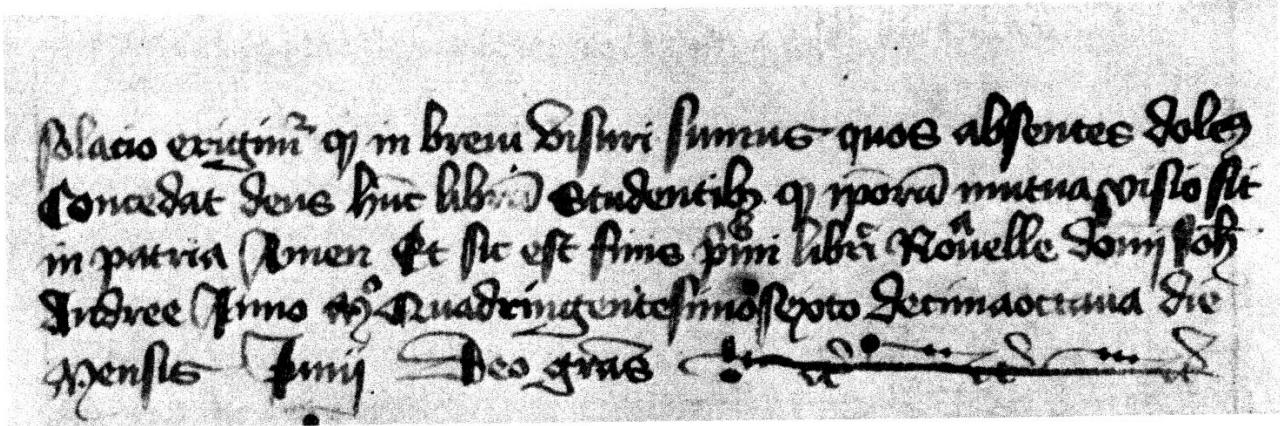 solacio erigim͛ ꝙ in breui visuri sumus quos absentes dolem9
Concedat deus hūc librū Studentibꝫ ꝙ ip̄orū mutua visio sit
in patria Amen Et sic est finis p̄mi libri Nouelle dom̄i Joh̄
Andree Anno Mͦ Quadringentesimosexto decimaoctaua die
Mensis Junij Deo gr̄as